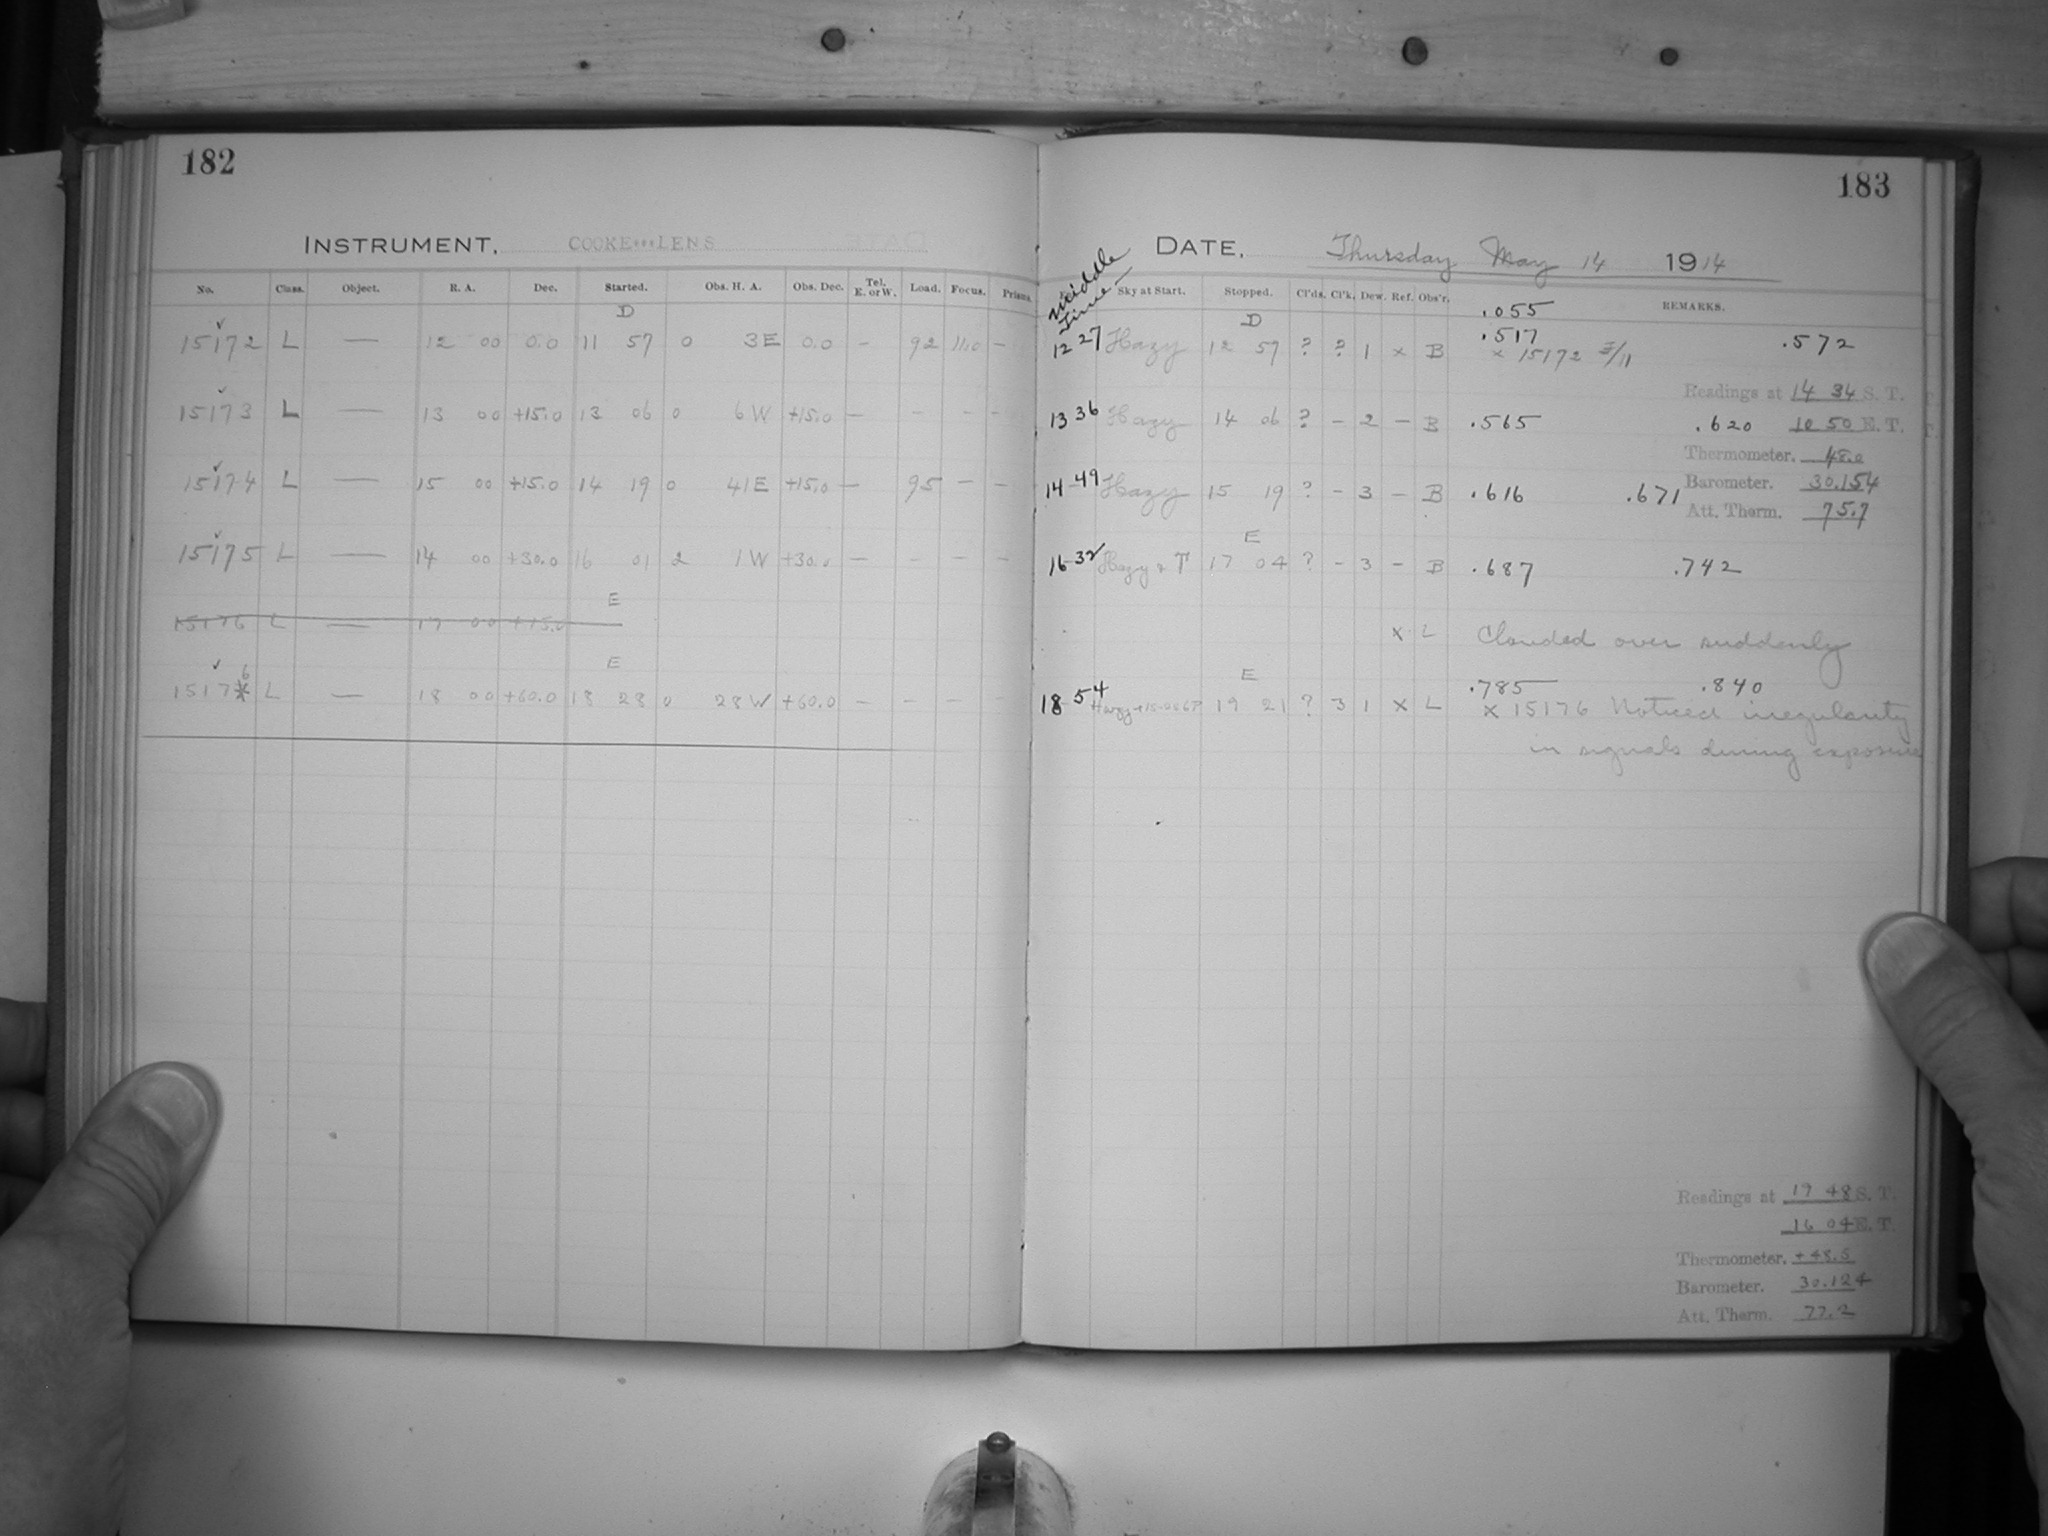 182
INSTRUMENT, COOKE LENS
No. Class. Object. R. A. Dec. Started. Obs. H. A. Obs. Dec. Tel. E. or W. Load. Focus. Prisms.
D
15172 L — 12 00 0.0 11 57 0 3E 0.0 — 92 11.0 —
15173 L — 13 00 +15.0 13 06 0 6W +15.0 — — — —
15174 L — 15 00 +15.0 14 19 0 41E +15.0 — 95 — —
15175 L — 14 00 +30.0 16 01 2 1W +30.0 — — — —
E
15176 L — 17 00 +15.0
E
15176 L — 18 00 +60.0 18 28 0 28W +60.0 — — — —
183
DATE, Thursday May 14 1914
middle Time
Sky at Start. Stopped. Cl'ds. Cl'k. Dew. Ref. Obs'r. REMARKS.
.055
D
12 27 Hazy 12 57 ? ? 1 x B .517 .572
x 15172
Readings at 14 34 S. T.
13 36 Hazy 14 06 ? — 2 — B .565 .620
10 50 E. T.
Thermometer. 48.0
Barometer. 30.154
14-49 Hazy 15 19 ? — 3 — B .616 .671
Att. Therm. 75.7
E
16-32 Hazy + T 17 04 ? — 3 — B .687 .742
x L Clouded over suddenly
E
18 54 Hazy 19 21 ? 3 1 x L .785 .840
x 15176 Noticed irregularity
in signals during exposure
Readings at 19 48 S. T.
16 04 E. T.
Thermometer. +48.5
Barometer. 30.124
Att. Therm. 77.2